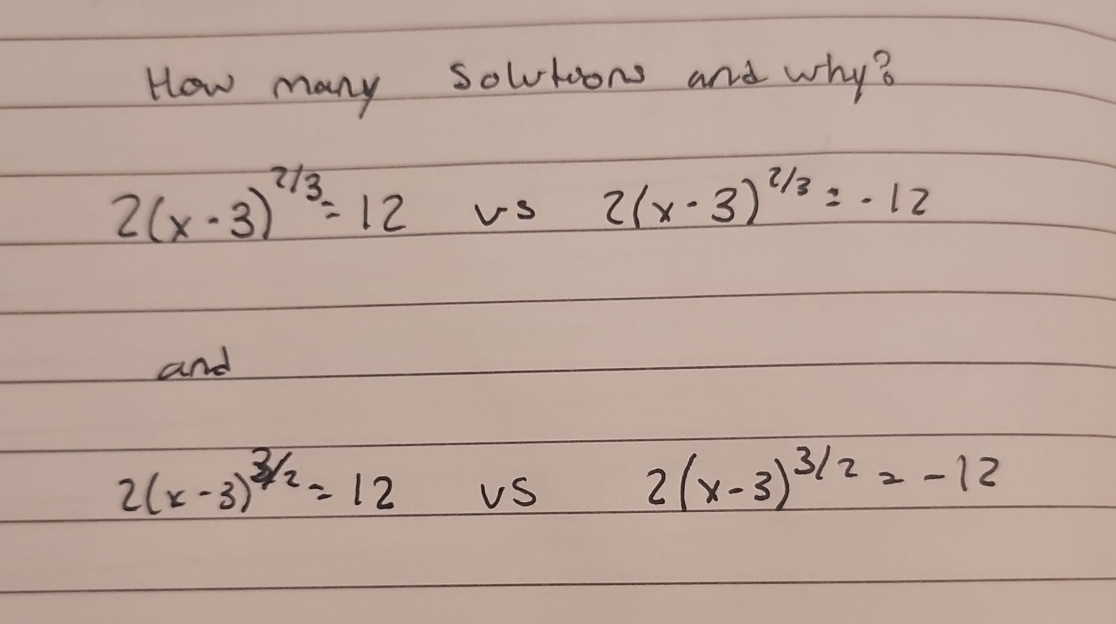 How many solutions and why?
2(x-3)^2/3 = 12 vs 2(x-3)^2/3 = -12
and
2(x-3)^3/2 = 12 vs 2(x-3)^3/2 = -12